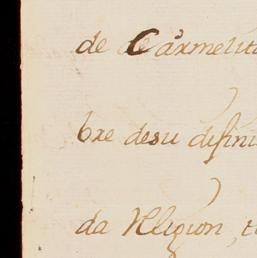 de Carmelit
bre desu difini
da Religion, t